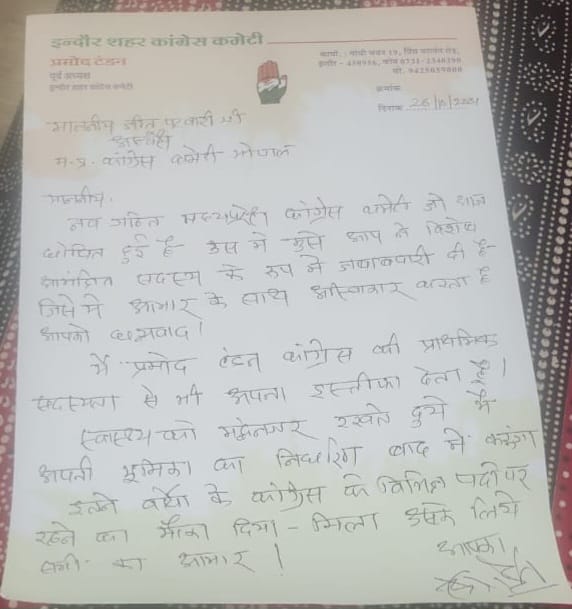 इन्दौर शहर कांग्रेस कमेटी
प्रमोद टंडन
पूर्व अध्यक्ष
इन्दौर शहर कांग्रेस कमेटी
कार्या. : गांधी भवन 19, शिव विलास पैलेस,
इन्दौर - फोन 0731-2540390
मो. 9425059000
क्रमांक
दिनांक 26/10/
माननीय जीतू पटवारी जी
अध्यक्ष
म.प्र. कांग्रेस कमेटी भोपाल
मान्यवर,
नव गठित मध्यप्रदेश कांग्रेस कमेटी जो आज
घोषित हुई है उस में मुझे आप ने विशेष
आमंत्रित सदस्य के रूप में जवाबदारी दी है
जिसे मैं आभार के साथ अस्वीकार करता हूँ
आपको धन्यवाद।
मैं प्रमोद टंडन कांग्रेस की प्राथमिक
सदस्यता से भी अपना इस्तीफा देता हूँ।
स्वास्थ्य को मद्देनजर रखते हुये मैं
अपनी भूमिका का निर्धारण बाद में करूंगा
इतने वर्षों के कांग्रेस के विभिन्न पदों पर
रहने का मौका दिया - मिला उसके लिये
सभी का आभार !
आपका